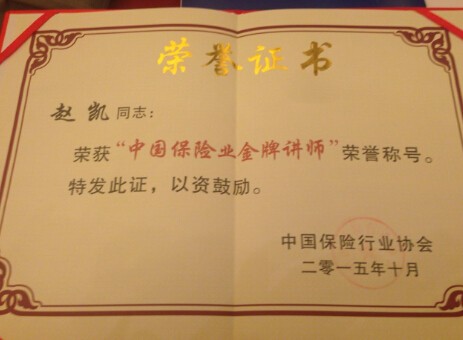 荣誉证书
赵凯同志：
荣获“中国保险业金牌讲师”荣誉称号。
特发此证，以资鼓励。
中国保险行业协会
二零一五年十月